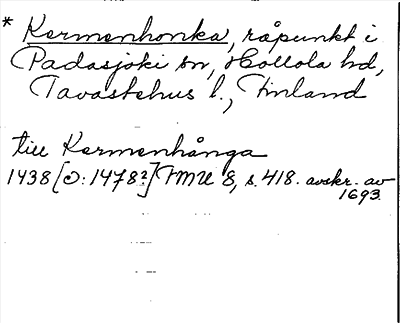 * Kermenhonka, råpunkt i
Padasjoki sn, Hollola hd,
Tavastehus l., Finland
till Kermenhånga
1438 [O: 1478?] FMU 8, s. 418. avskr. av
1693.